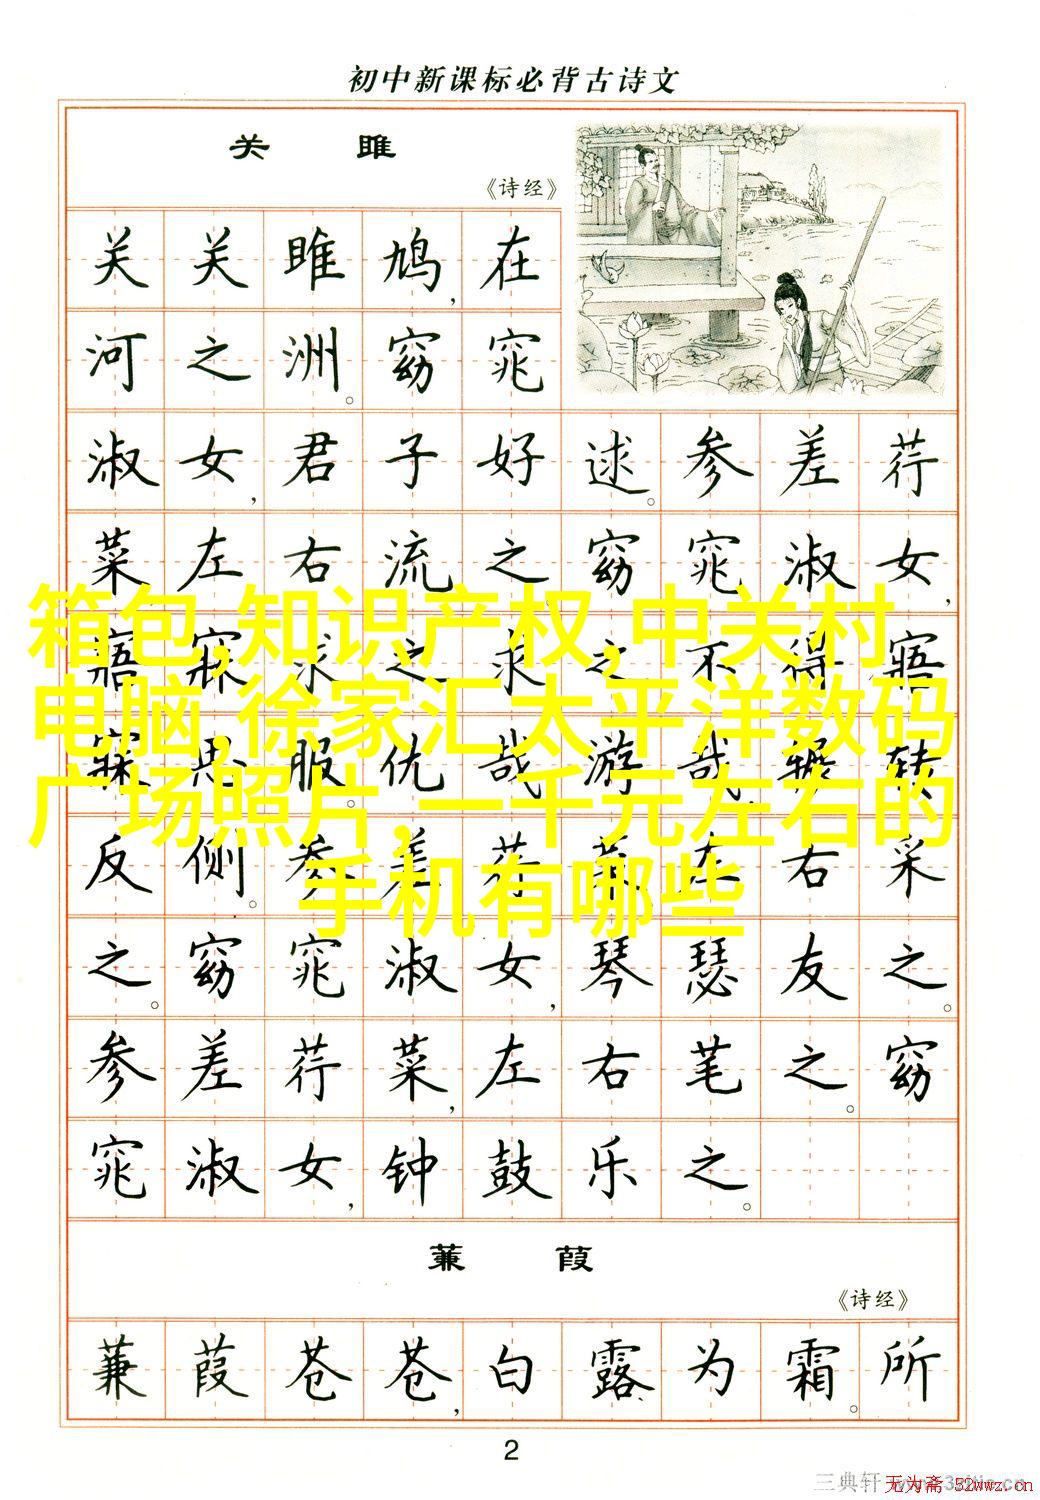 初中新课标必背古诗文
关雎
《诗经》
关关雎鸠,在
河之洲。窈窕
淑女,君子好逑。参差荇
菜左右流之窈窕淑女,
箱包,知识产权,中关村
寤寐求之求之不得寤
电脑,徐家汇太平洋数码
寐思服。优哉游哉,辗转
广场照片,一千元左右的
反侧。参差荇菜左右采
手机有哪些
之。窈窕淑女,琴瑟友之。
参差荇菜,左右芼之。窈
窕淑女,钟鼓乐之。
蒹葭
《诗经》
蒹葭苍苍,白露为霜。所
2
三典轩
无为斋 52wwz.cn